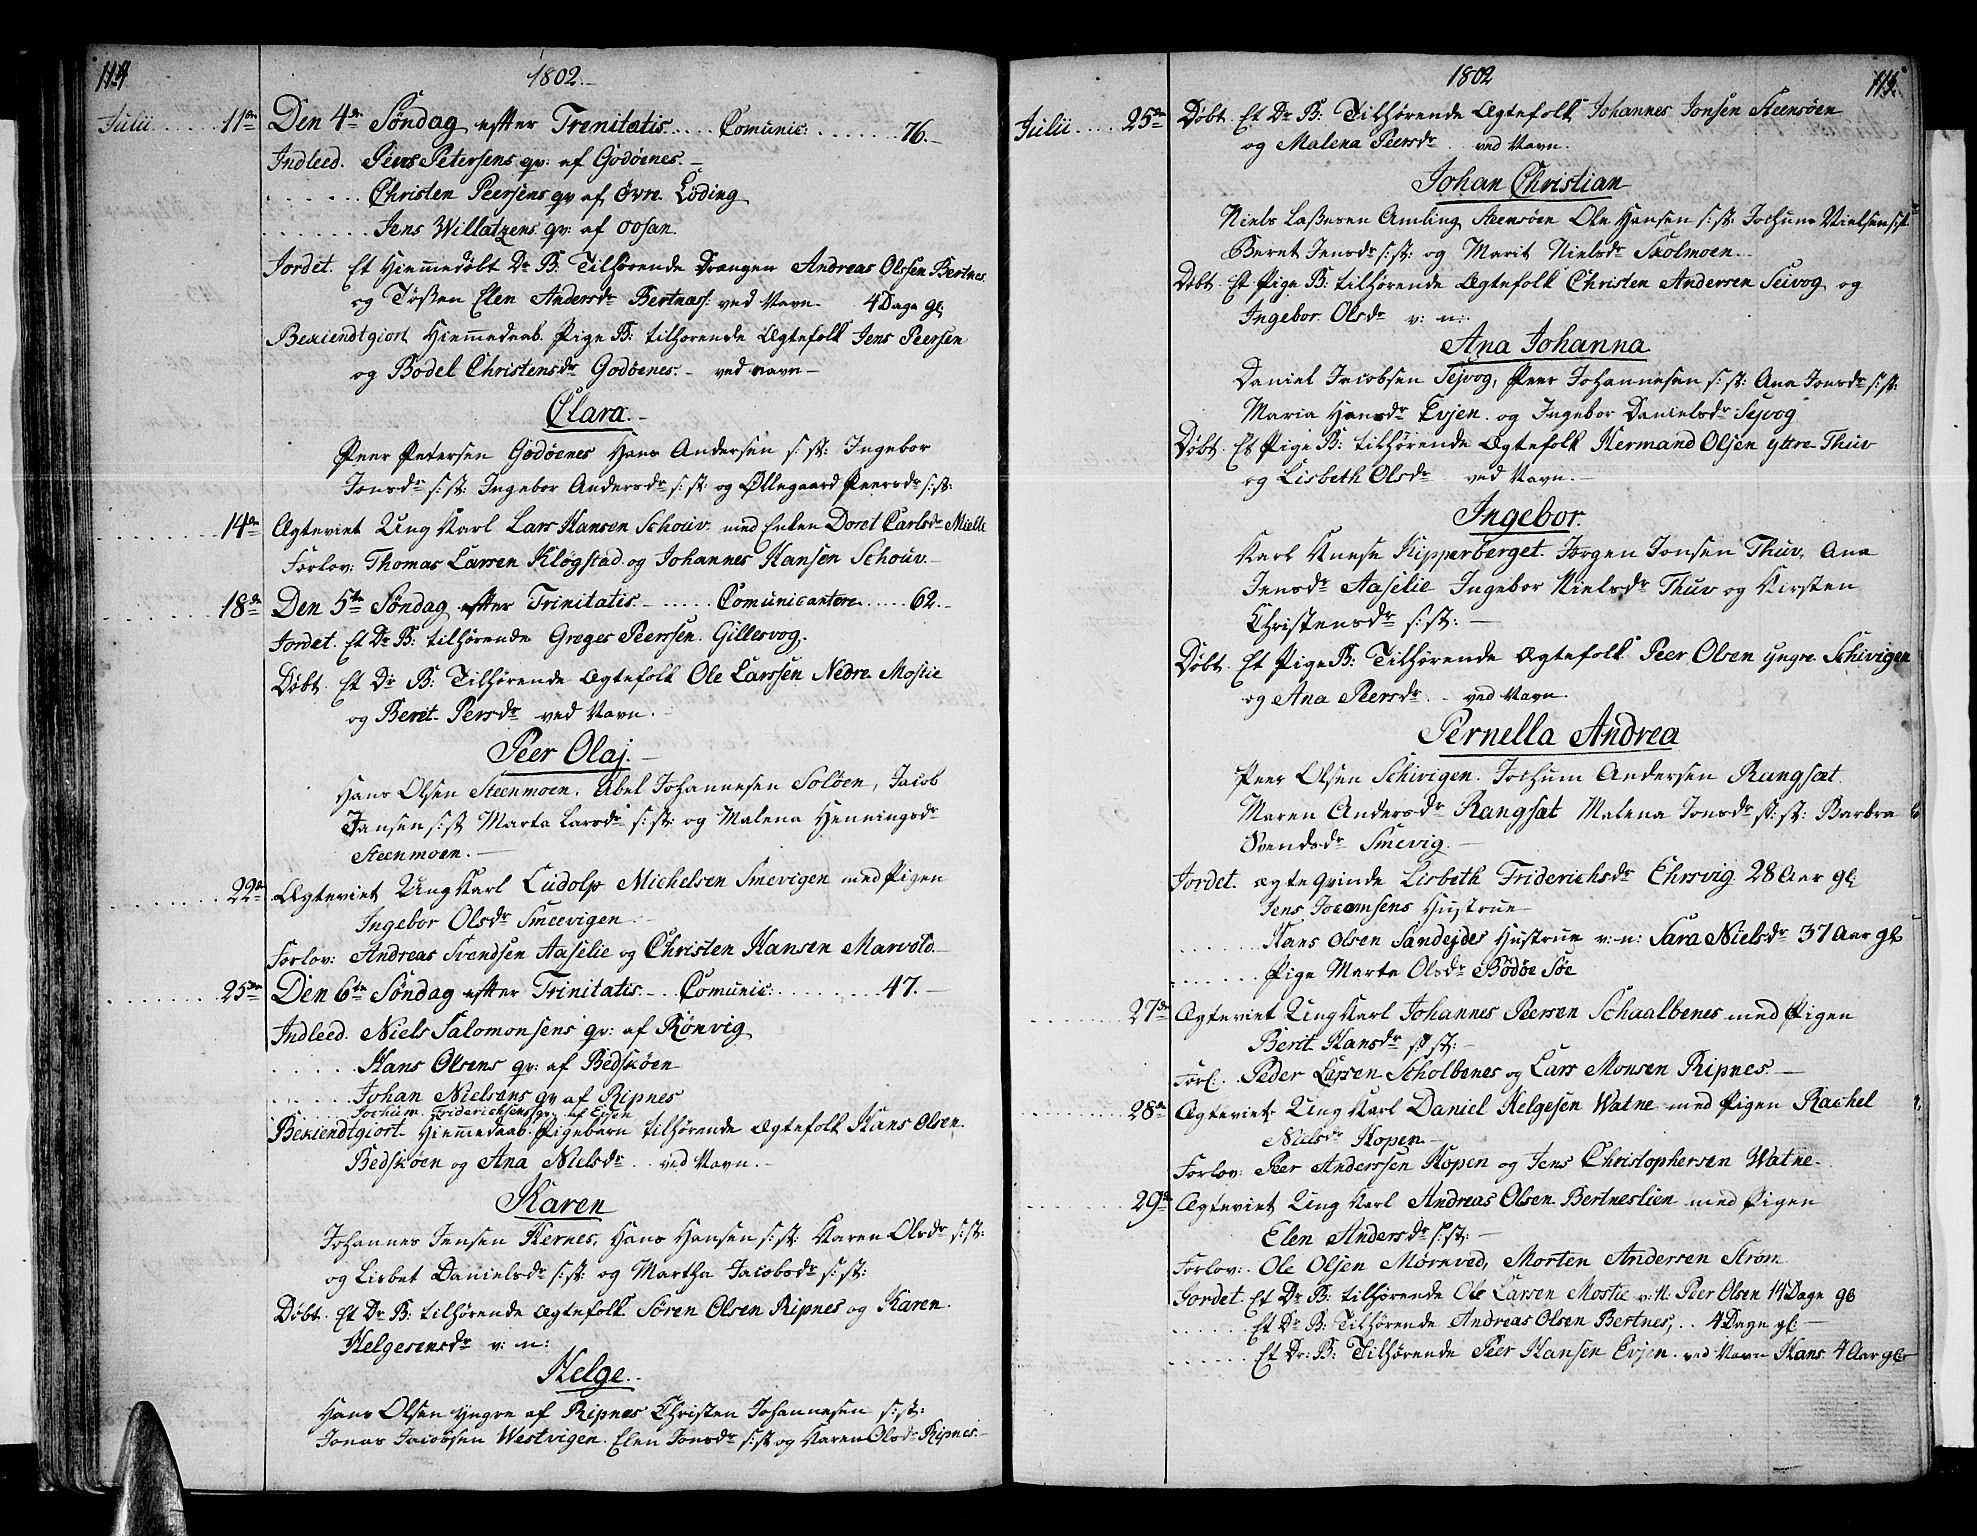 114
1802.
Julii 11te Den 4de Søndag efter Trenitatis Comunic: 76.
Indleed. Peers Petersens qv: af Godøenes.
Christen Peersens qv af Øvre Löding
Jens Willatzens qv: af oosan.
Jordet. Et Hiemmedøbt Dr: B: Tilhørende Drengen Andreas Olssen Bertnes
og Tøssen Elen Andersdr Bertnæs: ved Navn. 4 Dage gl:
Bekiendtgiort Hiemmedaab. Pige B: tilhørende Ægtefolk Jens Peersen
og Bodel Christensdr Godøenes. ved navn
Clara.
Peer Petersen Godøenes Hans Andersen s: st: Ingebor
Jonsdr s: st: Ingebor Andersdr s: st: og Øllegaard Peersdr s: st:
14de Ægteviet Ung Karl Lars Hansen Schouv. med Enken Doret Carlsdr Mielle
Forlov: Thomas Larsen Kløgstad og Johannes Hansen Schouv.
18de Den 5te Søndag efter Trinitatis Comunicantere 62.
Jordet. Et Dr: B: tilhørende Greges Peersen. Gillesvog.
Døbt Et Dr B: Tilhørende Ægtefolk Ole Larssen Nedre Mostie
og Berit Persdr ved Navn.
Peer Olaj.
Hans Olsen Steenmoen. Abel Johannesen Soløen, Jacob
Jansen s: st Marta Larsdr s: st: og Malena Henningsdr
Steenmoen.
22de Ægteviet Ung Karl Ludolp Michelsen Smevigen med Pigen
Ingebor Olsdr Smeevigen
Forlov: Andreas Svendsen Aaselie og Christen Hansen Marvold
25de Den 6te Søndag efter Trinitatis Comunic: 47.
Indleed. Niels Salomonsens qv: af Rönvig
Hans Olsens qv: af Bedskøen
Johan Nielsens qv af Ripnes
Jochum Friderichsens qv: af Evien
Bekiendtgiort Hiemmedaab. Pigebarn tilhørende Ægtefolk Hans Olsen
Bedskøen og Ana Nielsdr ved Navn.
Karen
Johannes Jensen Hernes, Hans Hansen s: st: Karen Olsdr s: st:
og Lisbet Danielsdr s: st: og Martha Jacobsdr s: st:
Døbt. Et Dr: B: tilhørende Ægtefolk Sören Olsen Ripnes og Karen
Helgesensdr v: n:
Helge.
Hans Olsen yngre af Ripnes Christen Johannesen s: st:
Jonas Jacobsen Westvigen. Elen Jonsdr s: st og Karen Olsdr Ripnes.
1802
115.
Julii 25de Døbt Et Dr B: Tilhørende Ægtefolk Johannes Jonsen Steensöen
og Malena Peersdr ved Navn.
Johan Christian
Niels Lassesen Amling Steensöen Ole Hansen s: st: Jochum Nielsen s: st
Beret Jensdr s: st: og Marit Nielsdr Skolmoen.
Døbt. Et Pige B: tilhørende Ægtefolk Christen Andersen Seivog og
Ingebor Olsdr v: n:
Ana Johanna
Daniel Jacobsen Sejvog, Peer Johannesen s: st: Ana Jonsdr s: st:
Maria Hansdr Evjen. og Ingebor Danielsdr Sejvog
Døbt. Et Pige B: tilhörende Ægtefolk Hermand Olsen yttre Thuv
og Lisbeth Olsdr ved Navn.
Ingebor.
Karl Knese Kipperberget. Jörgen Jonsen Thuv, Ana
Jensdr Aaselie Ingebor Nielsdr Thuv og Kirsten
Christensdr s: st:
Døbt. Et Pige B: Tilhørende Ægtefolk Peer Olsen yngre Schivigen
og Ana Peersdr ved Navn
Pernella Andrea
Peer Olsen Schivigen. Jochum Andersen Rangsæt
Maren Andersdr Rangsæt Malena Jonsdr st: st: Barbra
Svendsdr Smevig.
Jordet. ægte qvinde Lisbeth Friderichsdr Ehrsvig 28 Aar gl:
Jens Hustrue
Hans Olsen Sandejdes Hustrue v: n: Sara Nielsdr 37 Aar gl
Pige Marte Olsdr Bödøe Søe
27de Ægteviet Ung Karl Johannes Peersen Schaalbenes med Pigen
Berit Hansdr s: st:
Forl: Peder Larsen Scholbenes og Lars Monsen Ripnes.
28de Ægteviet Ung Karl Daniel Helgesen Watne med Pigen Rachel
Nielsdr Kopen.
Forlov: Peer Anderssen Kopen og Jens Christophersen Watne.
29de Ægteviet Ung Karl Andreas Olsen Bertneslien med Pigen
Elen Andersdr s: st:
Forlov: Ole Olsen Mørkved, Morten Andersen Ström
Jordet. Et Dr: B: tilhørende Ole Larsen Mostie v: N: Peer Olsen 14 Dage gl
Et Dr: B: Tilhørende Andreas Olsen Bertnes, 4 Dage gl:
Et Dr: B: Tilhørende Peer Hansen Evjen ved Navn Hans 4 Aar gl